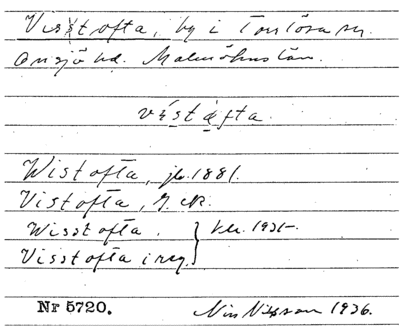 Visstofta, by i Torrlösa sn.
Onsjö hd. Malmöhus län.
víståfta.
Wistofta, jb. 1881.
Vistofta, G. K.
Wisstofta. } 1935
Visstofta i reg.
Nr 5720. Nils Nilsson 1936.